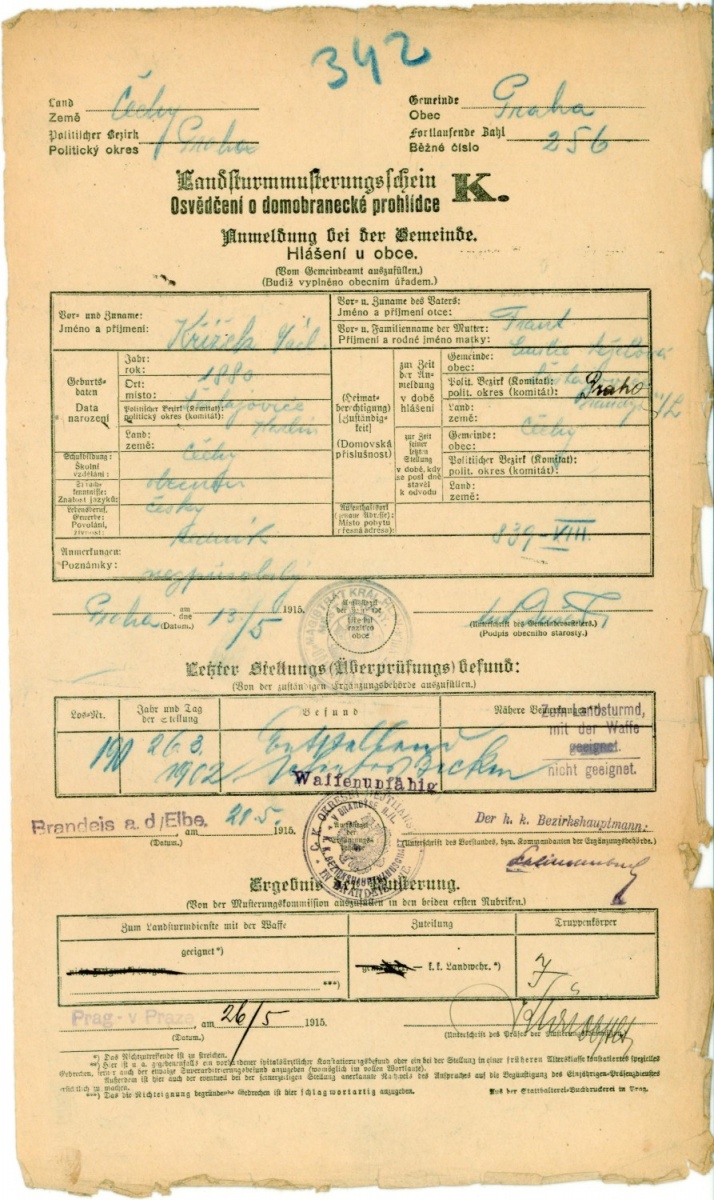 342
Land Čechy Gemeinde Praha
Země Obec
Politischer Bezirk Praha Fortlaufende Zahl 256
Politický okres Běžné číslo
Landsturmmusterungsschein K.
Osvědčení o domobranecké prohlídce
Anmeldung bei der Gemeinde.
Hlášení u obce.
(Vom Gemeindeamt auszufüllen.)
(Budiž vyplněno obecním úřadem.)
Vor- und Zuname:
Jméno a příjmení: Křížek
Vor- u. Zuname des Vaters:
Jméno a příjmení otce: Frant
Vor- u. Familienname der Mutter:
Příjmení a rodné jméno matky: Emilie
Geburtsdaten
Data narození
Jahr:
rok: 1880
Ort:
místo:
Politischer Bezirk (Komitat):
politický okres (komitát): Karlín
Land:
země: Čechy
(Heimatberechtigung)
[Zuständigkeit]
(Domovská příslušnost)
zur Zeit der Anmeldung
v době hlášení
Gemeinde:
obec:
Polit. Bezirk (Komitat):
polit. okres (komitát): Praha
Land:
země: Čechy
zur Zeit seiner letzten Stellung
v době, kdy se posl dně stavěl k odvodu
Gemeinde:
obec:
Politischer Bezirk (Komitat):
polit. okres (komitát):
Land:
země:
Schulbildung:
Školní vzdělání:
Sprachkenntnisse:
Znalost jazyků: česky
Lebensberuf, Gewerbe:
Povolání, živnost:
Aufenthaltsort (genaue Adresse):
Místo pobytu (řesná adresa): 839-VIII.
Anmerkungen:
Poznámky:
Praha am dne 13/5 1915.
(Datum.)
(Unterschrift des Gemeindevorstehers.)
(Podpis obecního starosty.)
Letzter Stellungs(Überprüfungs)befund:
(Von der zuständigen Ergänzungsbehörde auszufüllen.)
Los-Nr. Jahr und Tag der Stellung Befund Nähere Bemerkungen
190 26.3. 1902
Zum Landsturmd,
mit der Waffe
geeignet.
nicht geeignet.
Waffenunfähig
Brandeis a.d/Elbe. am 21.5. 1915.
(Datum.)
Der k. k. Bezirkshauptmann:
(Unterschrift des Vorstandes, bzw. Kommandanten der Ergänzungsbehörde.)
Ergebnis der Musterung.
(Von der Musterungskommission auszufüllen in den beiden ersten Rubriken.)
Zum Landsturmdienste mit der Waffe Zuteilung Truppenkörper
geeignet*)
***)
k.k. Landwehr.*)
Prag - v Praze, am 26/5 1915.
(Datum.)
(Unterschrift des Präses der Musterungskommission.)
*) Das Nichtzutreffende ist zu streichen.
**) Hier ist u. a. gegebenenfalls ein vorhandener spitalsärztlicher Konstatierungsbefund oder ein bei der Stellung in einer früheren Altersklasse konstatiertes spezielles
Gebrechen, ferner auch der etwaige Superarbitrierungsbefund anzugeben (womöglich im vollen Wortlaute).
Außerdem ist hier auch der eventuell bei der seinerzeitigen Stellung anerkannte Nachweis des Anspruches auf die Begünstigung des Einjährigen-Präsenzdienstes
ersichtlich zu machen.
***) Das die Nichteignung begründende Gebrechen ist hier schlagwortartig anzugeben.
Aus der Statthalterei-Buchdruckerei in Prag.